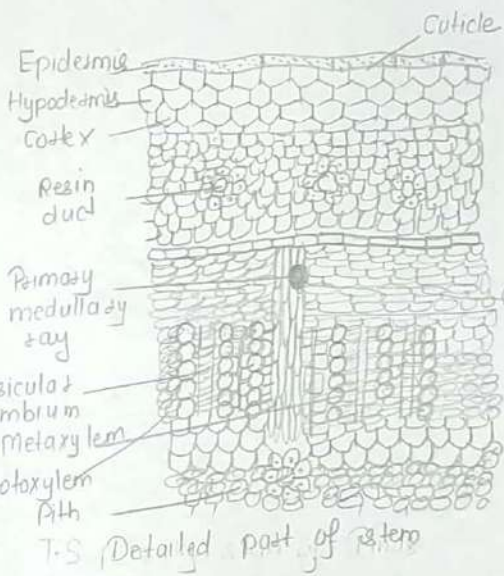 Cuticle
Epidermis
Hypodermis
Cortex
Resin
duct
Primary
medullary
ray
sicular
mbrium
Metaxylem
otoxylem
Pith
T.S Detailed part of stem